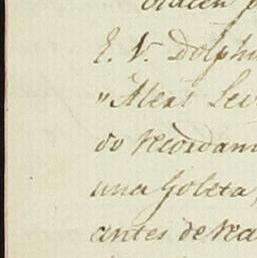 E. V. Dolphi
"Alexs Lev
do recordam
una Goleta,
antes de rea